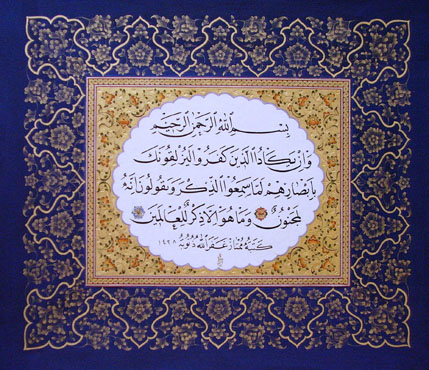 بِسْمِ اللهِ الرَّحْمٰنِ الرَّحِيْمِ
وَاِنْ يَكَادُ الَّذِيْنَ كَفَرُوا لَيُزْلِقُونَكَ
بِاَبْصَارِهِمْ لَمَّا سَمِعُوا الذِّكْرَ وَيَقُولُونَ اِنَّهُ
لَمَجْنُونٌ وَمَا هُوَ اِلَّا ذِكْرٌ لِلْعَالَمِيْنَ
كتبه ممتاز غفر الله ذنوبه ١٤٢٨